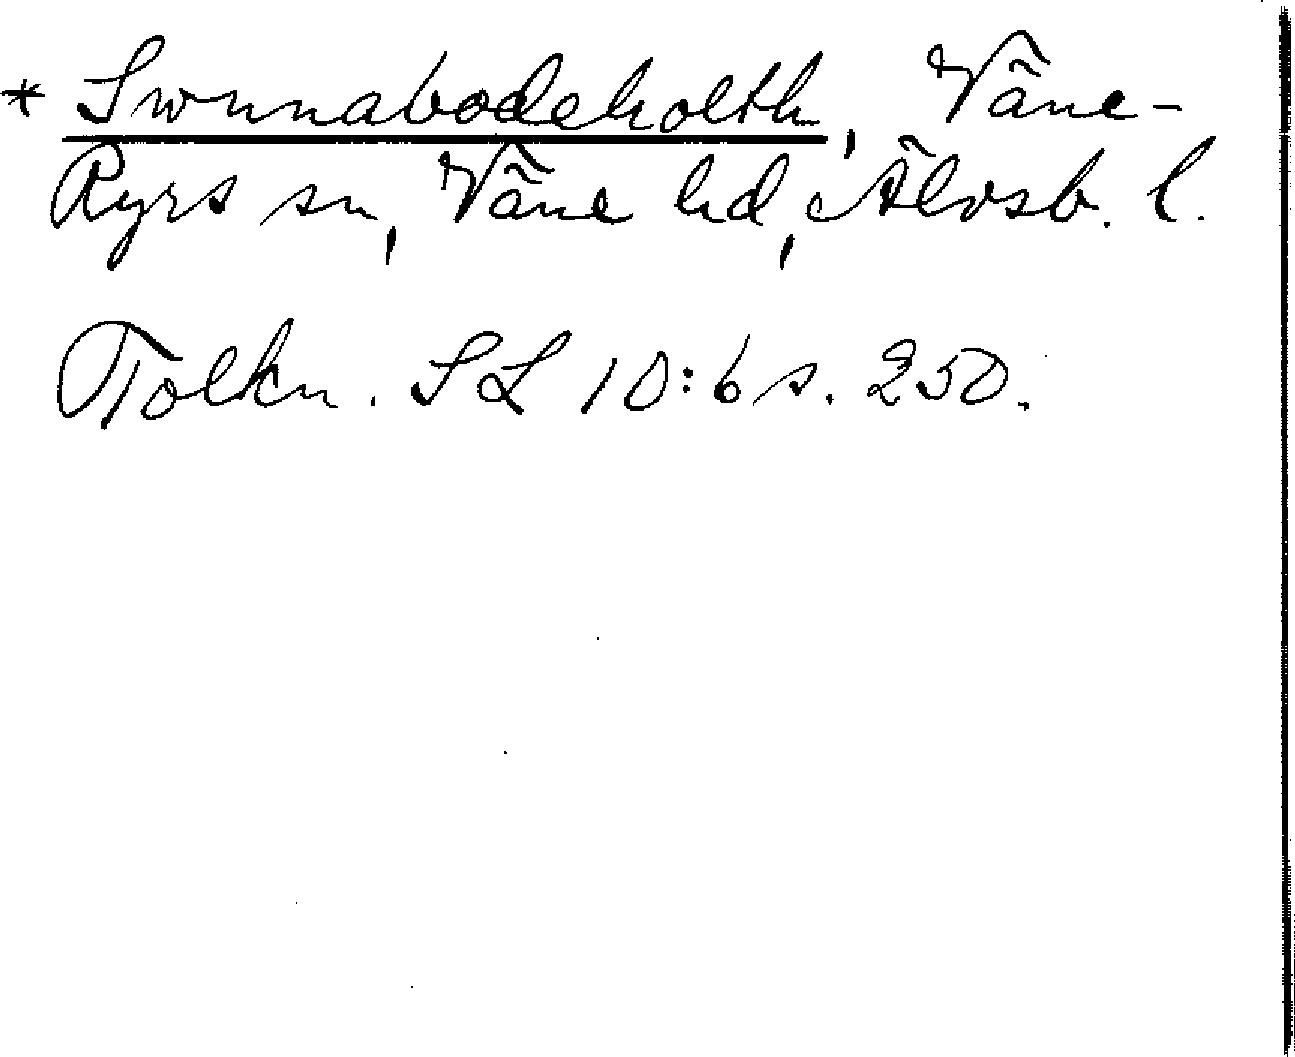 * Swnnabodeholth, Väne-
Ryrs sn, Väne hd, Älvsb. l.
Tolkn. SL 10:6 s. 250.